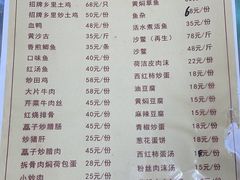 招牌乡里土鸡 68元/只
招牌乡里炒土鸡 50元/份
血鸭 48元/份
黄沙古 35元/份
香煎鲫鱼 35元/份
口味鱼 40元/份
红汤鱼 40元/份
炒田鸡 58元/份
大片牛肉 58元/份
芹菜牛肉丝 48元/份
红烧排骨 50元/份
藠子炒腊肠 45元/份
炒猪肝 40元/份
藠子炒腊肉 45元/份
拆骨肉焖荷包蛋 28元/份
小炒肉
黄焖草鱼
鱼杂 68元/份
活水煮活鱼 元/份
沙鳖（再生） 78元/斤
沙鳖 元/斤
荷洁皮肉沫 22元/份
西红柿炒蛋 18元/份
油豆腐 18元/份
黄焖豆腐 18元/份
麻辣豆腐 18元/份
青椒炒蛋 18元/份
韭花蛋饼 18元/份
西红柿蛋汤 元/份
粉丝肉沫汤 18元/份